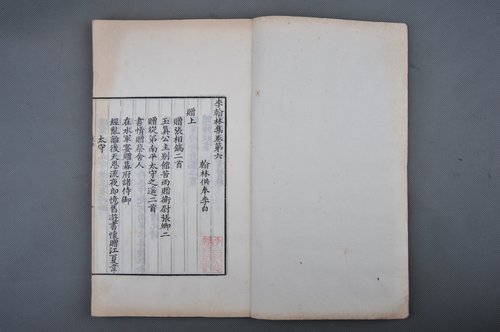 李翰林集卷第六
翰林供奉李白
贈上
贈張相鎬二首
玉真公主別館苦雨贈衛尉張卿二
贈從弟南平太守之遙二首
書情贈蔡舍人
在水軍宴贈幕府諸侍御
經亂離後天恩流夜郎憶舊遊書懷贈江夏韋
太守